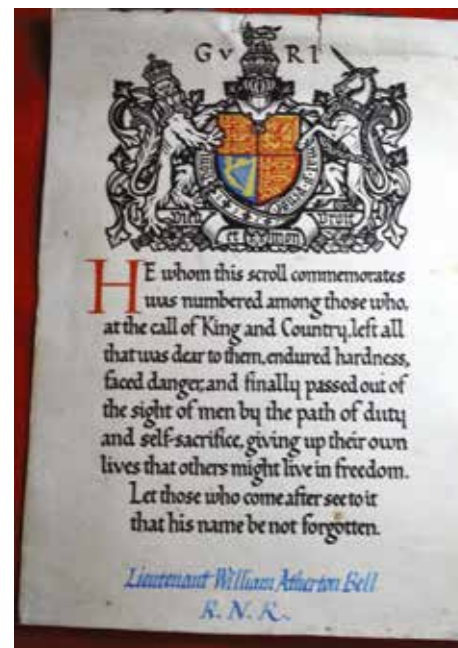 G V R I
Dieu et mon Droit
HE whom this scroll commemorates
was numbered among those who,
at the call of King and Country, left all
that was dear to them, endured hardness,
faced danger, and finally passed out of
the sight of men by the path of duty
and self-sacrifice, giving up their own
lives that others might live in freedom.
Let those who come after see to it
that his name be not forgotten.
Lieutenant William Atherton Bell
R. N. R.